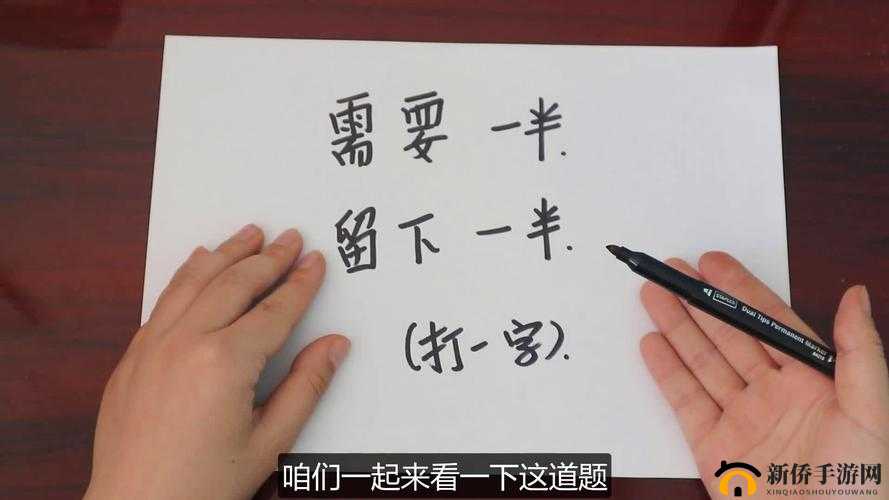 需要一半.
留下一半.
(打一字).
STAEDTLER
Dual Tips Permanent Marker
咱们一起来看一下这道题
新侨手游网
XINQIAOSHOUYOUWANG